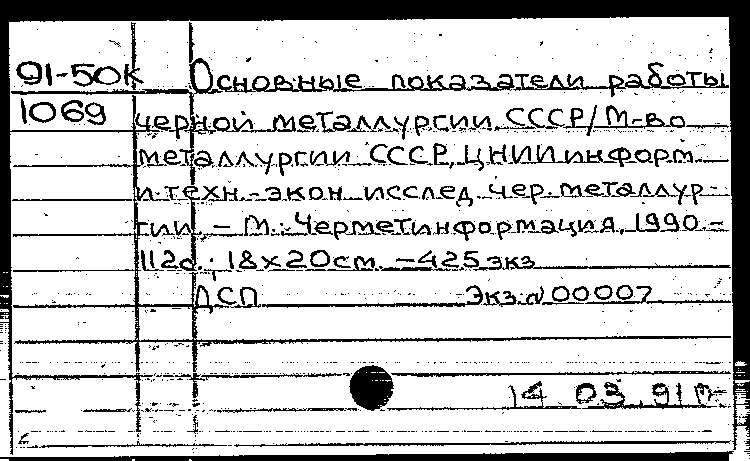 91-50к Основные показатели работы
1069 черной металлургии СССР/М-во
металлургии СССР, ЦНИИ информ.
и техн.-экон. исслед. чер. металлур-
гии. – М.: Черметинформация, 1990.–
112с.; 18×20см. –425 экз
ДСП Экз.№00007
14 03.91